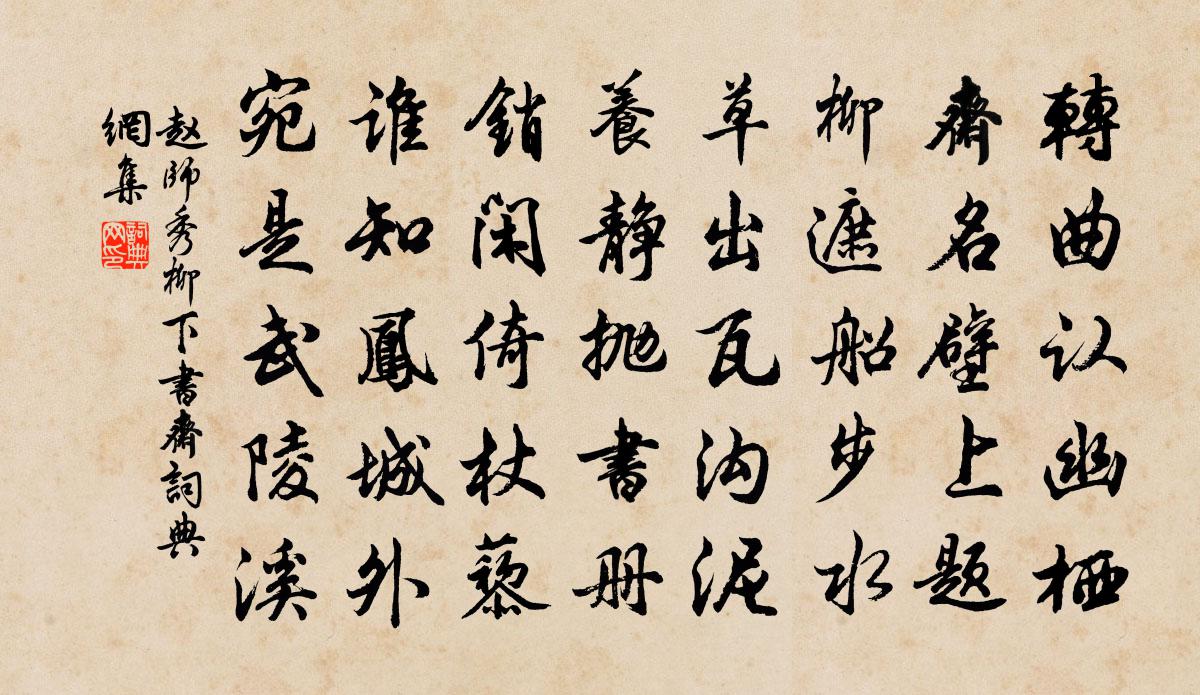 轉曲认幽栖
齋名壁上题
柳遮船步水
草出瓦沟泥
養静抛書册
銷閑倚杖藜
谁知鳳城外
宛是武陵溪
赵師秀柳下書齋詞典
網集
詞典
网印